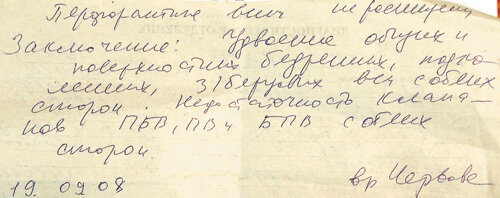 Перфорантные вены не расширены
Заключение: Удвоение общих и
поверхностных бедренных, подко-
ленных, з/берцовых вен с обеих
сторон. Недостаточность клапа-
нов ПБВ, ПВ и БПВ с обеих
сторон.
19.09.08 вр